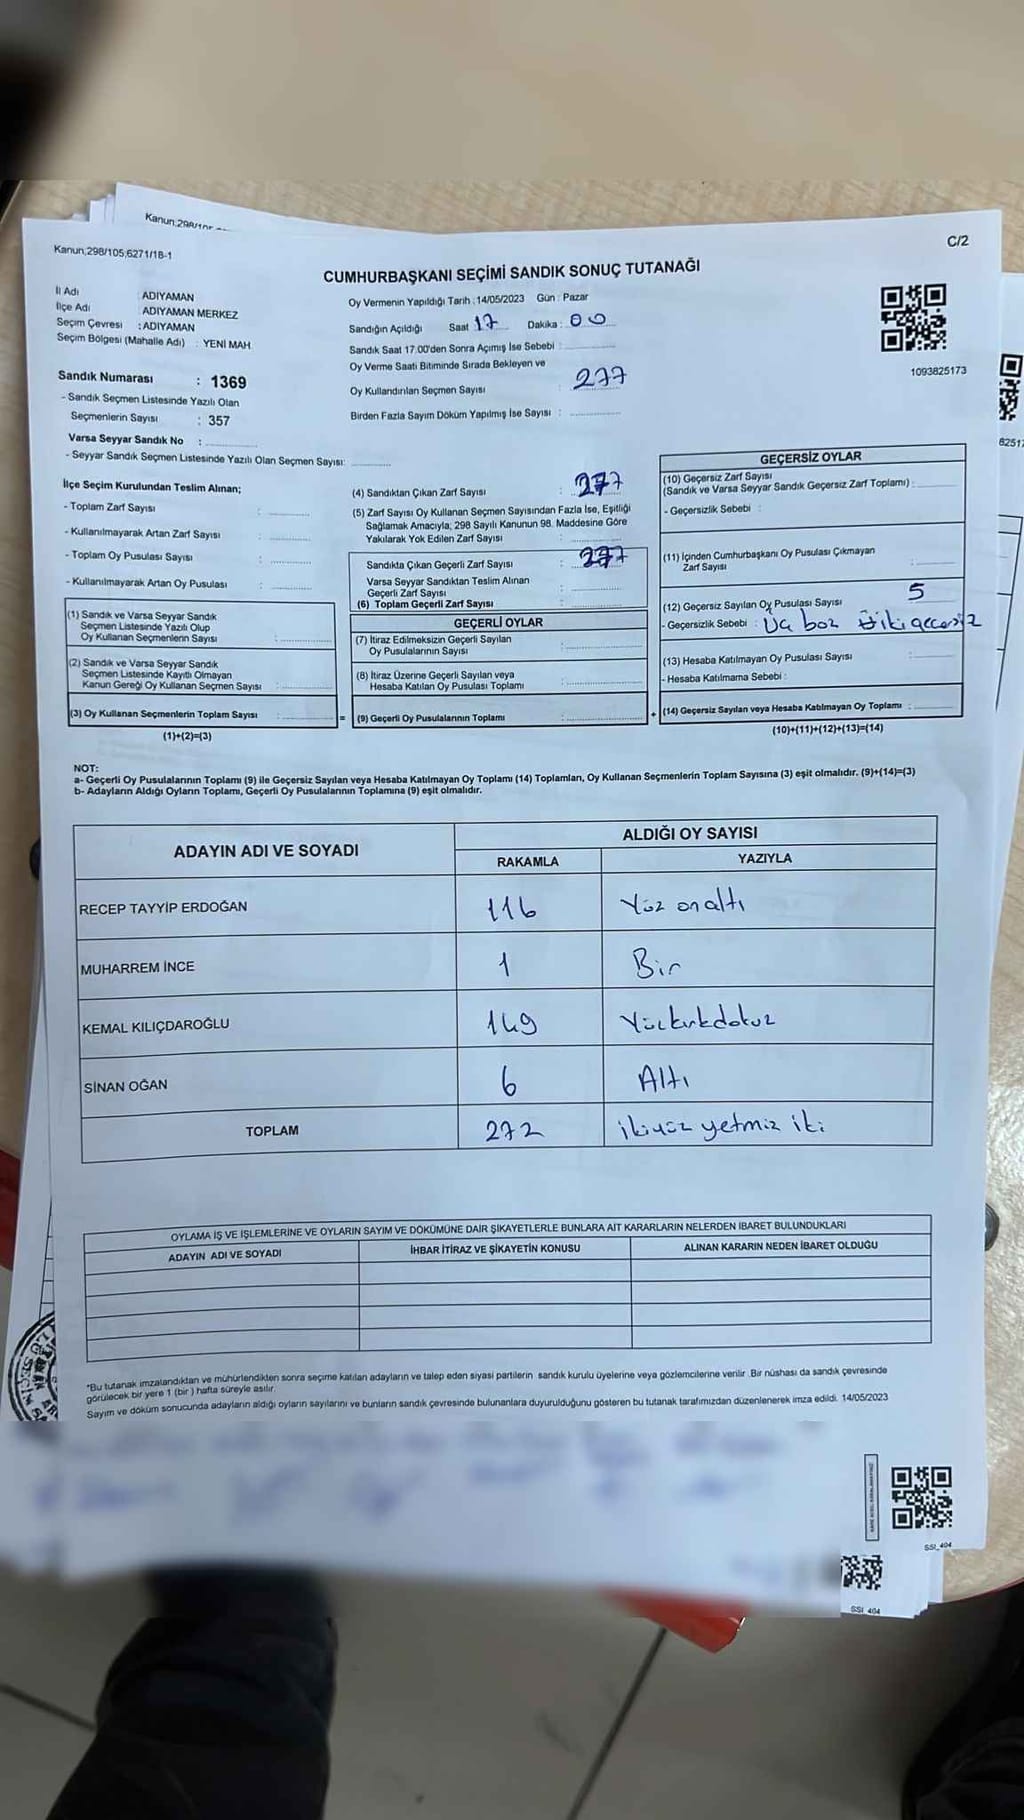 Kanun,298/105
Kanun,298/105;6271/18-1
C/2
CUMHURBAŞKANI SEÇİMİ SANDIK SONUÇ TUTANAĞI
İl Adı : ADIYAMAN
İlçe Adı : ADIYAMAN MERKEZ
Seçim Çevresi : ADIYAMAN
Seçim Bölgesi (Mahalle Adı) : YENİ MAH
Sandık Numarası : 1369
- Sandık Seçmen Listesinde Yazılı Olan
Seçmenlerin Sayısı : 357
Varsa Seyyar Sandık No :
- Seyyar Sandık Seçmen Listesinde Yazılı Olan Seçmen Sayısı:
Oy Vermenin Yapıldığı Tarih : 14/05/2023 Gün : Pazar
Sandığın Açıldığı Saat 17 Dakika : 00
Sandık Saat 17.00'den Sonra Açımış İse Sebebi :
Oy Verme Saati Bitiminde Sırada Bekleyen ve
Oy Kullandırılan Seçmen Sayısı : 277
Birden Fazla Sayım Döküm Yapılmış İse Sayısı :
1093825173
İlçe Seçim Kurulundan Teslim Alınan;
- Toplam Zarf Sayısı :
- Kullanılmayarak Artan Zarf Sayısı :
- Toplam Oy Pusulası Sayısı :
- Kullanılmayarak Artan Oy Pusulası :
(1) Sandık ve Varsa Seyyar Sandık
Seçmen Listesinde Yazılı Olup
Oy Kullanan Seçmenlerin Sayısı :
(2) Sandık ve Varsa Seyyar Sandık
Seçmen Listesinde Kayıtlı Olmayan
Kanun Gereği Oy Kullanan Seçmen Sayısı :
(3) Oy Kullanan Seçmenlerin Toplam Sayısı :
(1)+(2)=(3)
(4) Sandıktan Çıkan Zarf Sayısı : 277
(5) Zarf Sayısı Oy Kullanan Seçmen Sayısından Fazla İse, Eşitliği
Sağlamak Amacıyla; 298 Sayılı Kanunun 98. Maddesine Göre
Yakılarak Yok Edilen Zarf Sayısı :
Sandıkta Çıkan Geçerli Zarf Sayısı : 277
Varsa Seyyar Sandıktan Teslim Alınan
Geçerli Zarf Sayısı :
(6) Toplam Geçerli Zarf Sayısı :
GEÇERLİ OYLAR
(7) İtiraz Edilmeksizin Geçerli Sayılan
Oy Pusulalarının Sayısı :
(8) İtiraz Üzerine Geçerli Sayılan veya
Hesaba Katılan Oy Pusulası Toplamı :
= (9) Geçerli Oy Pusulalarının Toplamı :
GEÇERSİZ OYLAR
(10) Geçersiz Zarf Sayısı
(Sandık ve Varsa Seyyar Sandık Geçersiz Zarf Toplamı) :
- Geçersizlik Sebebi :
(11) İçinden Cumhurbaşkanı Oy Pusulası Çıkmayan
Zarf Sayısı :
(12) Geçersiz Sayılan Oy Pusulası Sayısı : 5
- Geçersizlik Sebebi : boz iki geçersiz
(13) Hesaba Katılmayan Oy Pusulası Sayısı :
- Hesaba Katılmama Sebebi :
+ (14) Geçersiz Sayılan veya Hesaba Katılmayan Oy Toplamı :
(10)+(11)+(12)+(13)=(14)
NOT:
a- Geçerli Oy Pusulalarının Toplamı (9) ile Geçersiz Sayılan veya Hesaba Katılmayan Oy Toplamı (14) Toplamları, Oy Kullanan Seçmenlerin Toplam Sayısına (3) eşit olmalıdır. (9)+(14)=(3)
b- Adayların Aldığı Oyların Toplamı, Geçerli Oy Pusulalarının Toplamına (9) eşit olmalıdır.
ADAYIN ADI VE SOYADI
ALDIĞI OY SAYISI
RAKAMLA YAZIYLA
RECEP TAYYİP ERDOĞAN 116 Yüz onaltı
MUHARREM İNCE 1 Bir
KEMAL KILIÇDAROĞLU 149 Yüzkırkdokuz
SİNAN OĞAN 6 Altı
TOPLAM 272 ikiyüz yetmiz iki
OYLAMA İŞ VE İŞLEMLERİNE VE OYLARIN SAYIM VE DÖKÜMÜNE DAİR ŞİKAYETLERLE BUNLARA AİT KARARLARIN NELERDEN İBARET BULUNDUKLARI
ADAYIN ADI VE SOYADI İHBAR İTİRAZ VE ŞİKAYETİN KONUSU ALINAN KARARIN NEDEN İBARET OLDUĞU
*Bu tutanak imzalandıktan ve mühürlendikten sonra seçime katılan adayların ve talep eden siyasi partilerin sandık kurulu üyelerine veya gözlemcilerine verilir. Bir nüshası da sandık çevresinde
görülecek bir yere 1 (bir) hafta süreyle asılır.
Sayım ve döküm sonucunda adayların aldığı oyların sayılarını ve bunların sandık çevresinde bulunanlara duyurulduğunu gösteren bu tutanak tarafımızdan düzenlenerek imza edildi. 14/05/2023
SSI_404
SSI_404